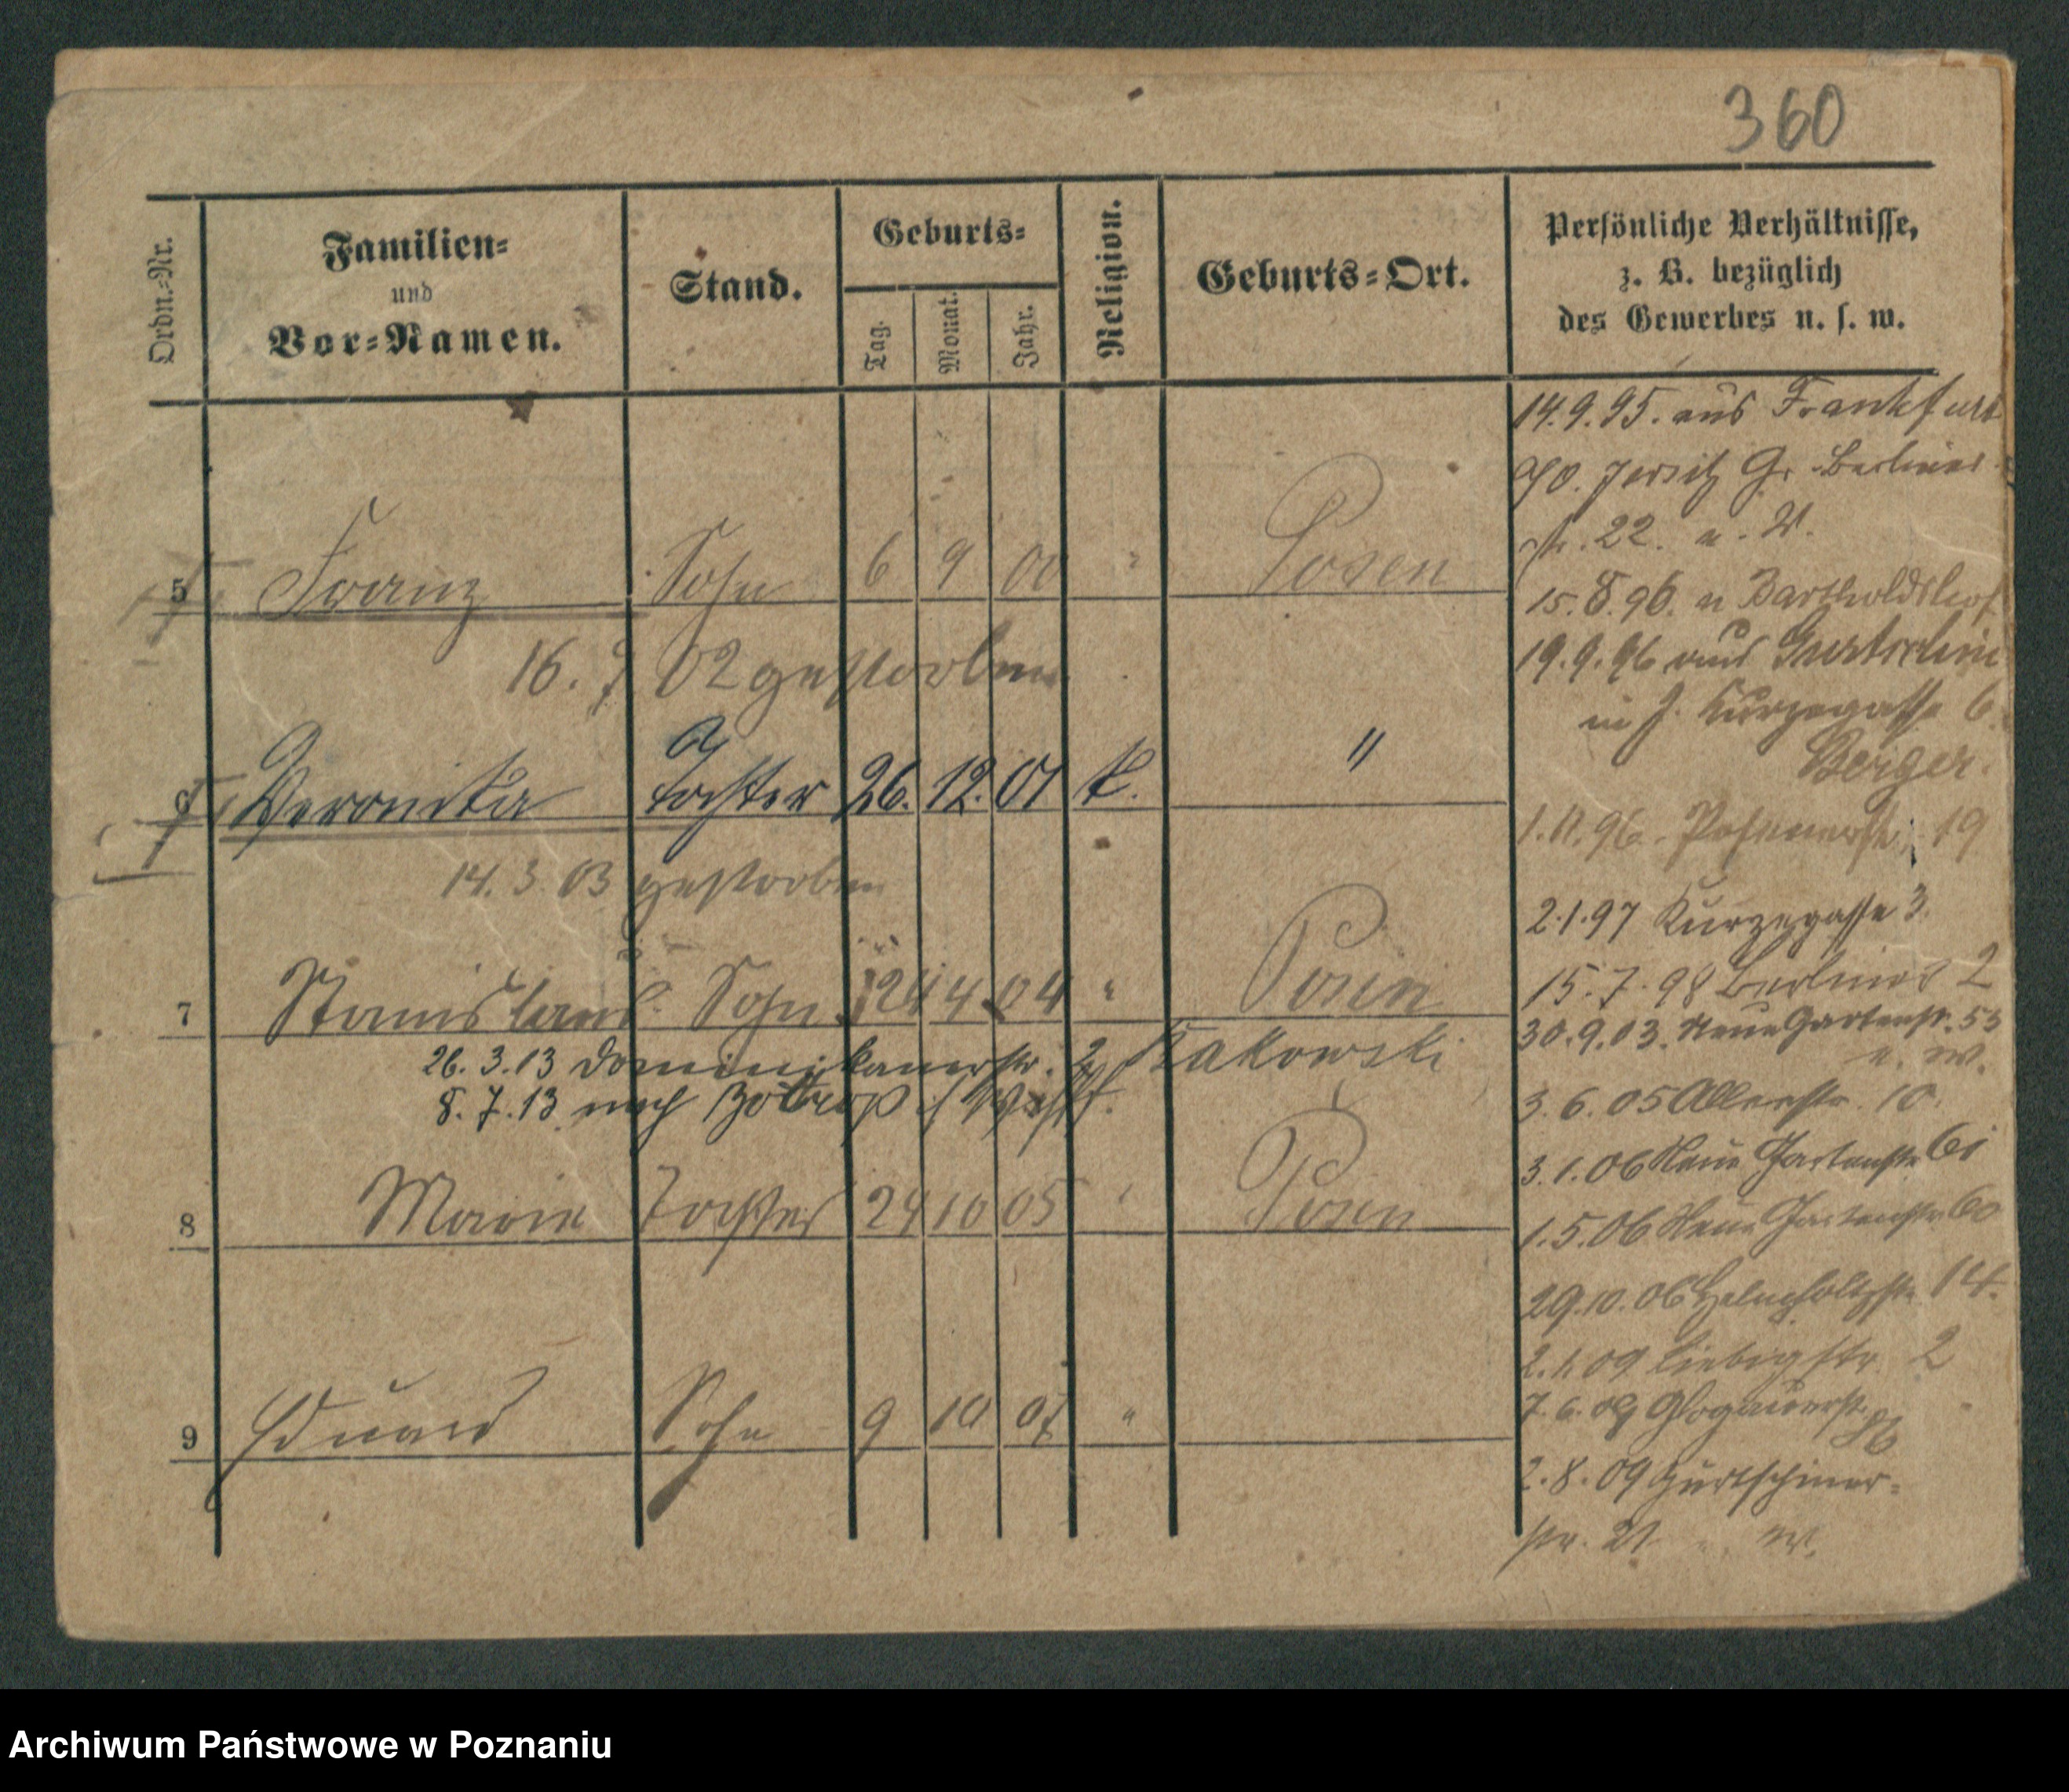 360
Ordn.-Nr.
Familien-
und
Vor-Namen.
Stand.
Geburts-
Tag.
Monat.
Jahr.
Religion.
Geburts-Ort.
Persönliche Verhältnisse,
z. B. bezüglich
des Gewerbes u. s. w.
5 Franz Sohn 6 9 00 " Posen
16. 7 02 gestorben
6 Veronika Tochter 26. 12. 01 k. "
14. 3. 03 gestorben
7 Stanislaus Sohn 24 4 04 " Posen
26. 3. 13 Dominikanerstr. 2 Kakowski
8. 7. 13 nach Bottrop i/ Westf.
8 Marie Tochter 24 10 05 " Posen
9 Eduard Sohn 9 10 07 "
14. 9. 95. aus Frankfurt
a/O. Jersitz Gr. Berliner-
str. 22. u. W.
15. 8. 96. n Bartholdshof
19. 9. 96 aus Gurtschin
in J. Kurzegasse 6.
Berger.
1. 11. 96. Posenerstr. 19
2. 1. 97 Kurzegasse 3.
15. 7. 98 Berliner 2
30. 9. 03. Neue Gartenstr. 53
u. W.
3. 6. 05 Allerstr. 10.
3. 1. 06 Neue Gartenstr 61
1. 5. 06 Neue Gartenstr 60
29. 10. 06 Helmholtzstr. 14.
2. 1. 09 Liebigstr. 2
7. 6. 09 Glogauerstr.
2. 8. 09 Gurtschiner-
str. 21 W.
Archiwum Państwowe w Poznaniu